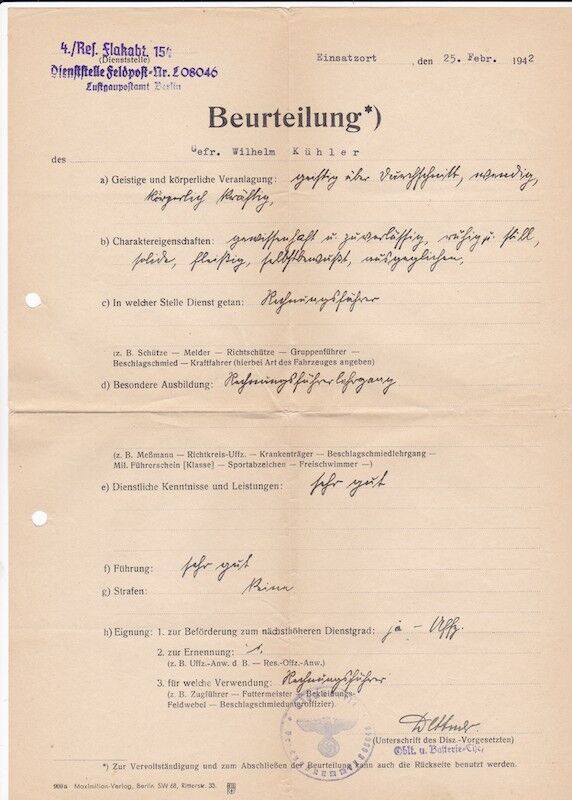 4./Res. Flakabt. 154
(Dienststelle)
Dienststelle Feldpost-Nr. L 08046
Luftgaupostamt Berlin
Einsatzort, den 25. Febr. 1942
Beurteilung*)
des Gefr. Wilhelm Kühler
a) Geistige und körperliche Veranlagung: geistig über Durchschnitt, wendig,
körperlich kräftig,
b) Charaktereigenschaften: gewissenhaft u. zuverlässig, ruhig u. still,
solide, fleißig, selbstbewußt, ausgeglichen.
c) In welcher Stelle Dienst getan: Rechnungsführer
(z. B. Schütze — Melder — Richtschütze — Gruppenführer —
Beschlagschmied — Kraftfahrer (hierbei Art des Fahrzeuges angeben)
d) Besondere Ausbildung: Rechnungsführerlehrgang
(z. B. Meßmann — Richtkreis-Uffz. — Krankenträger — Beschlagschmiedlehrgang —
Mil. Führerschein [Klasse] — Sportabzeichen — Freischwimmer —)
e) Dienstliche Kenntnisse und Leistungen: sehr gut
f) Führung: sehr gut
g) Strafen: Keine
h) Eignung: 1. zur Beförderung zum nächsthöheren Dienstgrad: ja - Uffz.
2. zur Ernennung:
(z. B. Uffz.-Anw. d. B. — Res.-Offz.-Anw.)
3. für welche Verwendung: Rechnungsführer
(z. B. Zugführer — Futtermeister — Bekleidungs-
Feldwebel — Beschlagschmiedunteroffizier)
(Unterschrift des Disz.-Vorgesetzten)
Oblt. u. Batterie-Chef
*) Zur Vervollständigung und zum Abschließen der Beurteilung kann auch die Rückseite benutzt werden.
900a Maximilian-Verlag, Berlin SW 68, Ritterstr. 33.